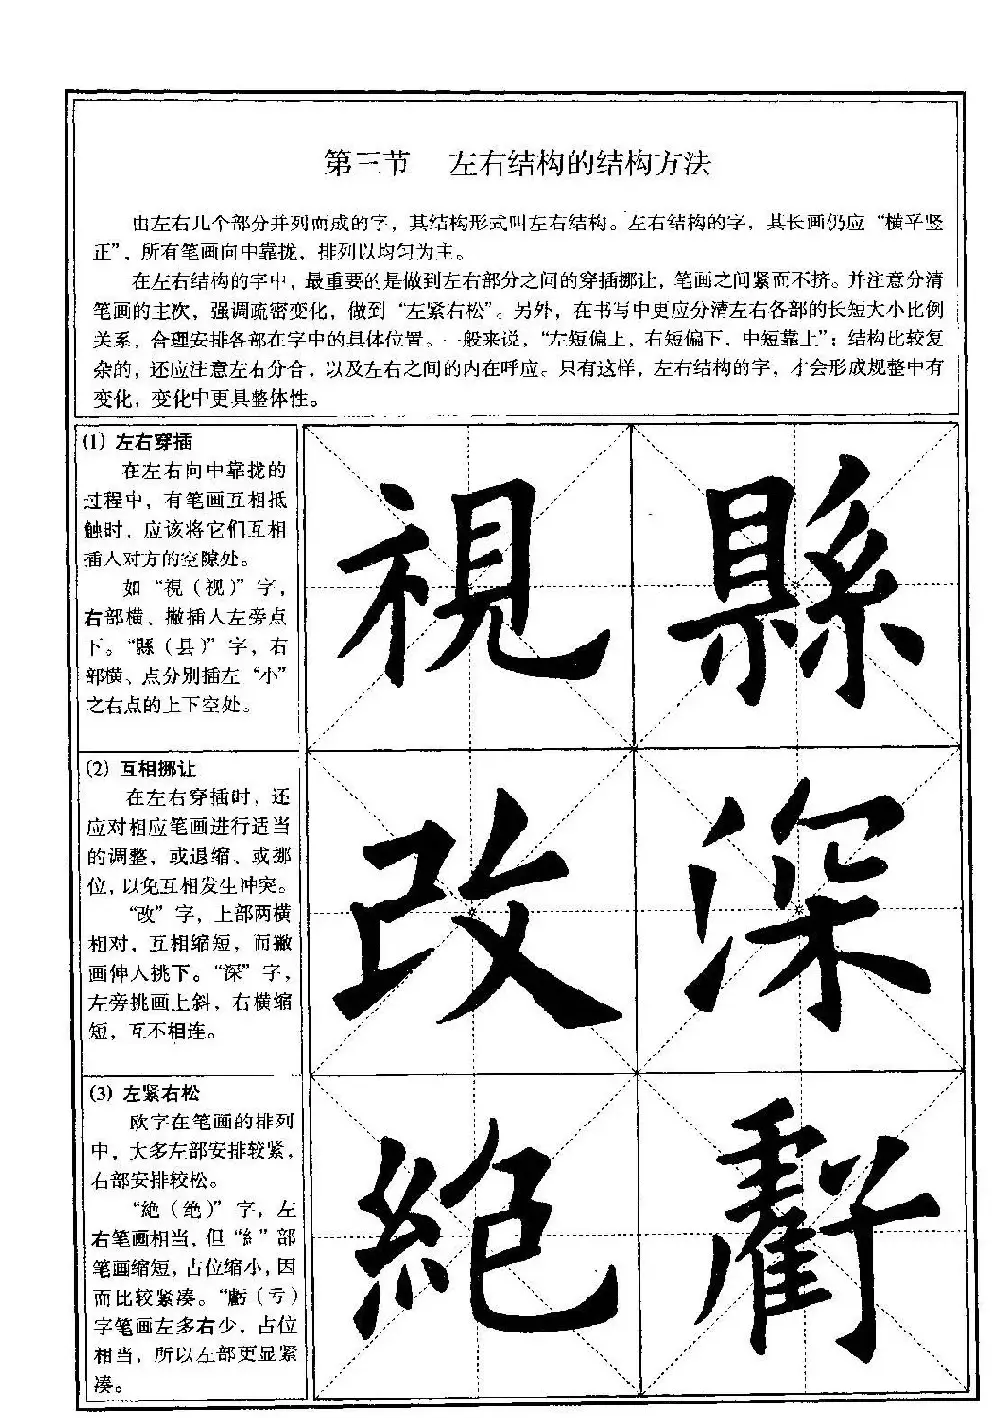 第三节 左右结构的结构方法
由左右几个部分并列而成的字，其结构形式叫左右结构。左右结构的字，其长画仍应“横平竖
正”，所有笔画向中靠拢，排列以均匀为主。
在左右结构的字中，最重要的是做到左右部分之间的穿插挪让，笔画之间紧而不挤。并注意分清
笔画的主次，强调疏密变化，做到“左紧右松”。另外，在书写中更应分清左右各部的长短大小比例
关系，合理安排各部在字中的具体位置。一般来说，“左短偏上，右短偏下，中短靠上”；结构比较复
杂的，还应注意左右分合，以及左右之间的内在呼应。只有这样，左右结构的字，才会形成规整中有
变化，变化中更具整体性。
(1) 左右穿插
在左右向中靠拢的
过程中，有笔画互相抵
触时，应该将它们互相
插入对方的空隙处。
如“視（视）”字，
右部横、撇插入左旁点
下。“縣（县）”字，右
部横、点分别插左“小”
之右点的上下空处。
視 縣
(2) 互相挪让
在左右穿插时，还
应对相应笔画进行适当
的调整，或退缩、或挪
位，以免互相发生冲突。
“改”字，上部两横
相对，互相缩短，而撇
画伸入挑下。“深”字，
左旁挑画上斜，右横缩
短，互不相连。
改 深
(3) 左紧右松
欧字在笔画的排列
中，大多左部安排较紧，
右部安排较松。
“絶（绝）”字，左
右笔画相当，但“糹”部
笔画缩短，占位缩小，因
而比较紧凑。“虧（亏）
字笔画左多右少，占位
相当，所以左部更显紧
凑。
絶 虧